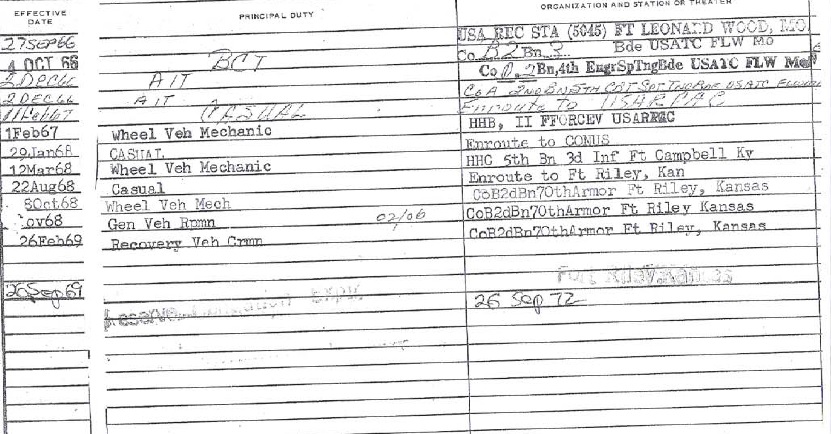 EFFECTIVE DATE PRINCIPAL DUTY ORGANIZATION AND STATION OR THEATER
27SEP66 USA REC STA (5045) FT LEONARD WOOD, MO.
4 OCT 66 BCT Co B 2 Bn 3 Bde USATC FLW Mo
2 DEC66 AIT Co 2Bn,4th EngrSpTngBde USATC FLW Mo
2 DEC66 AIT Co A 2ND BN 5TH CBT SPT TNG BDE USATC
11Feb67 CASUAL Enroute to USARPAC
1Feb67 Wheel Veh Mechanic HHB, II FFORCEV
29Jan68 CASUAL Enroute to CONUS
12Mar68 Wheel Veh Mechanic HHC 5th Bn 3d Inf Ft Campbell Ky
22Aug68 Casual Enroute to Ft Riley, Kan
8Oct68 Wheel Veh Mech CoB2dBn70thArmor Ft Riley, Kansas
ov68 Gen Veh Rpmn 02/06 CoB2dBn70thArmor Ft Riley Kansas
26Feb69 Recovery Veh Crmn CoB2dBn70thArmor Ft Riley, Kansas
Fort Riley, Kansas
26Sep69 26 Sep 72